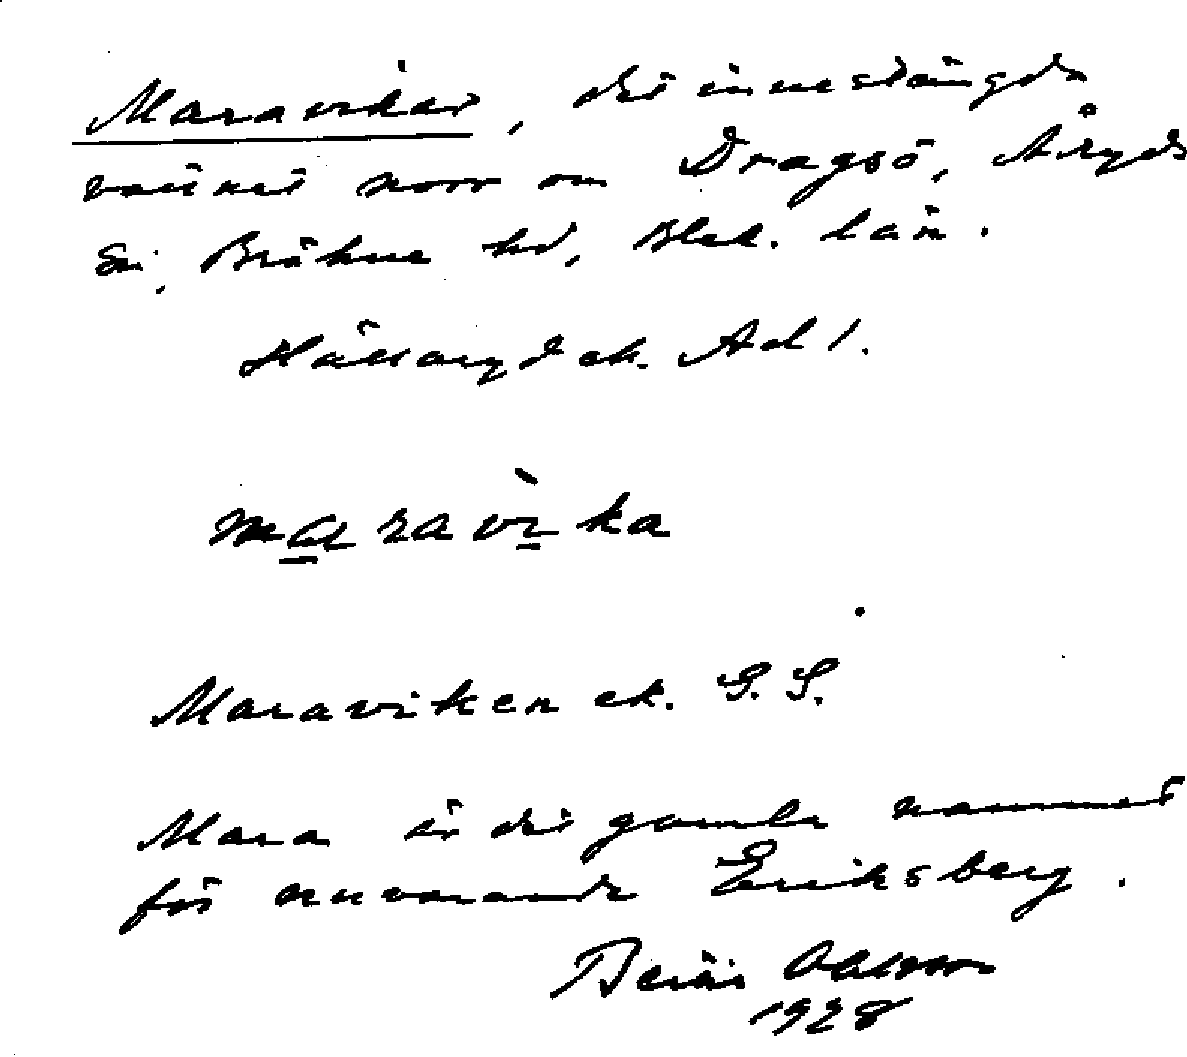 Maravikar, det innestängda
vattnet norr om Dragsö, Åryds
sn, Bräkne hd, Blek. län.
Hällaryd ek. Ad 1.
maravika
Maraviken ek. G. S.
Mara är det gamla namnet
för nuvarande Eriksberg.
Ohlsson
1928